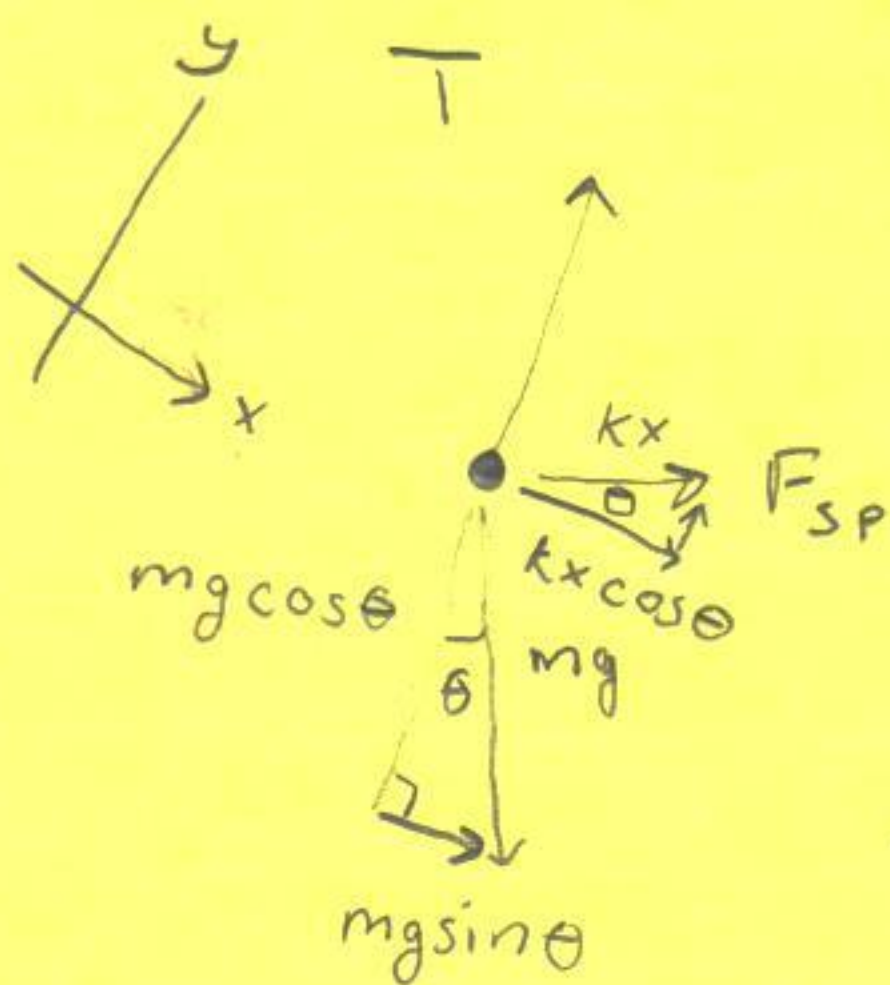 y
T
x
kx
θ
F sp
kx cosθ
mg cosθ
θ
mg
mg sinθ